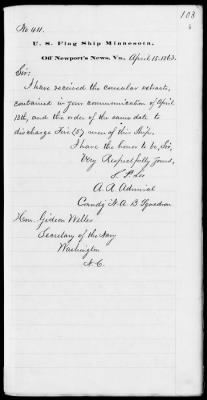 103
No 411.
U. S. Flag Ship Minnesota,
Off Newport's News, Va., April 15. 1863.
Sir:
I have received the consular extracts,
contained in your communication of April
13th, and the order of the same date to
discharge Five (5) men of this Ship.
I have the honor to be, Sir,
Very Respectfully Yours,
S. P. Lee
A. R. Admiral
Comdg N. A. B. Squadron
Hon. Gideon Welles
Secretary of the Navy
Washington
D. C.